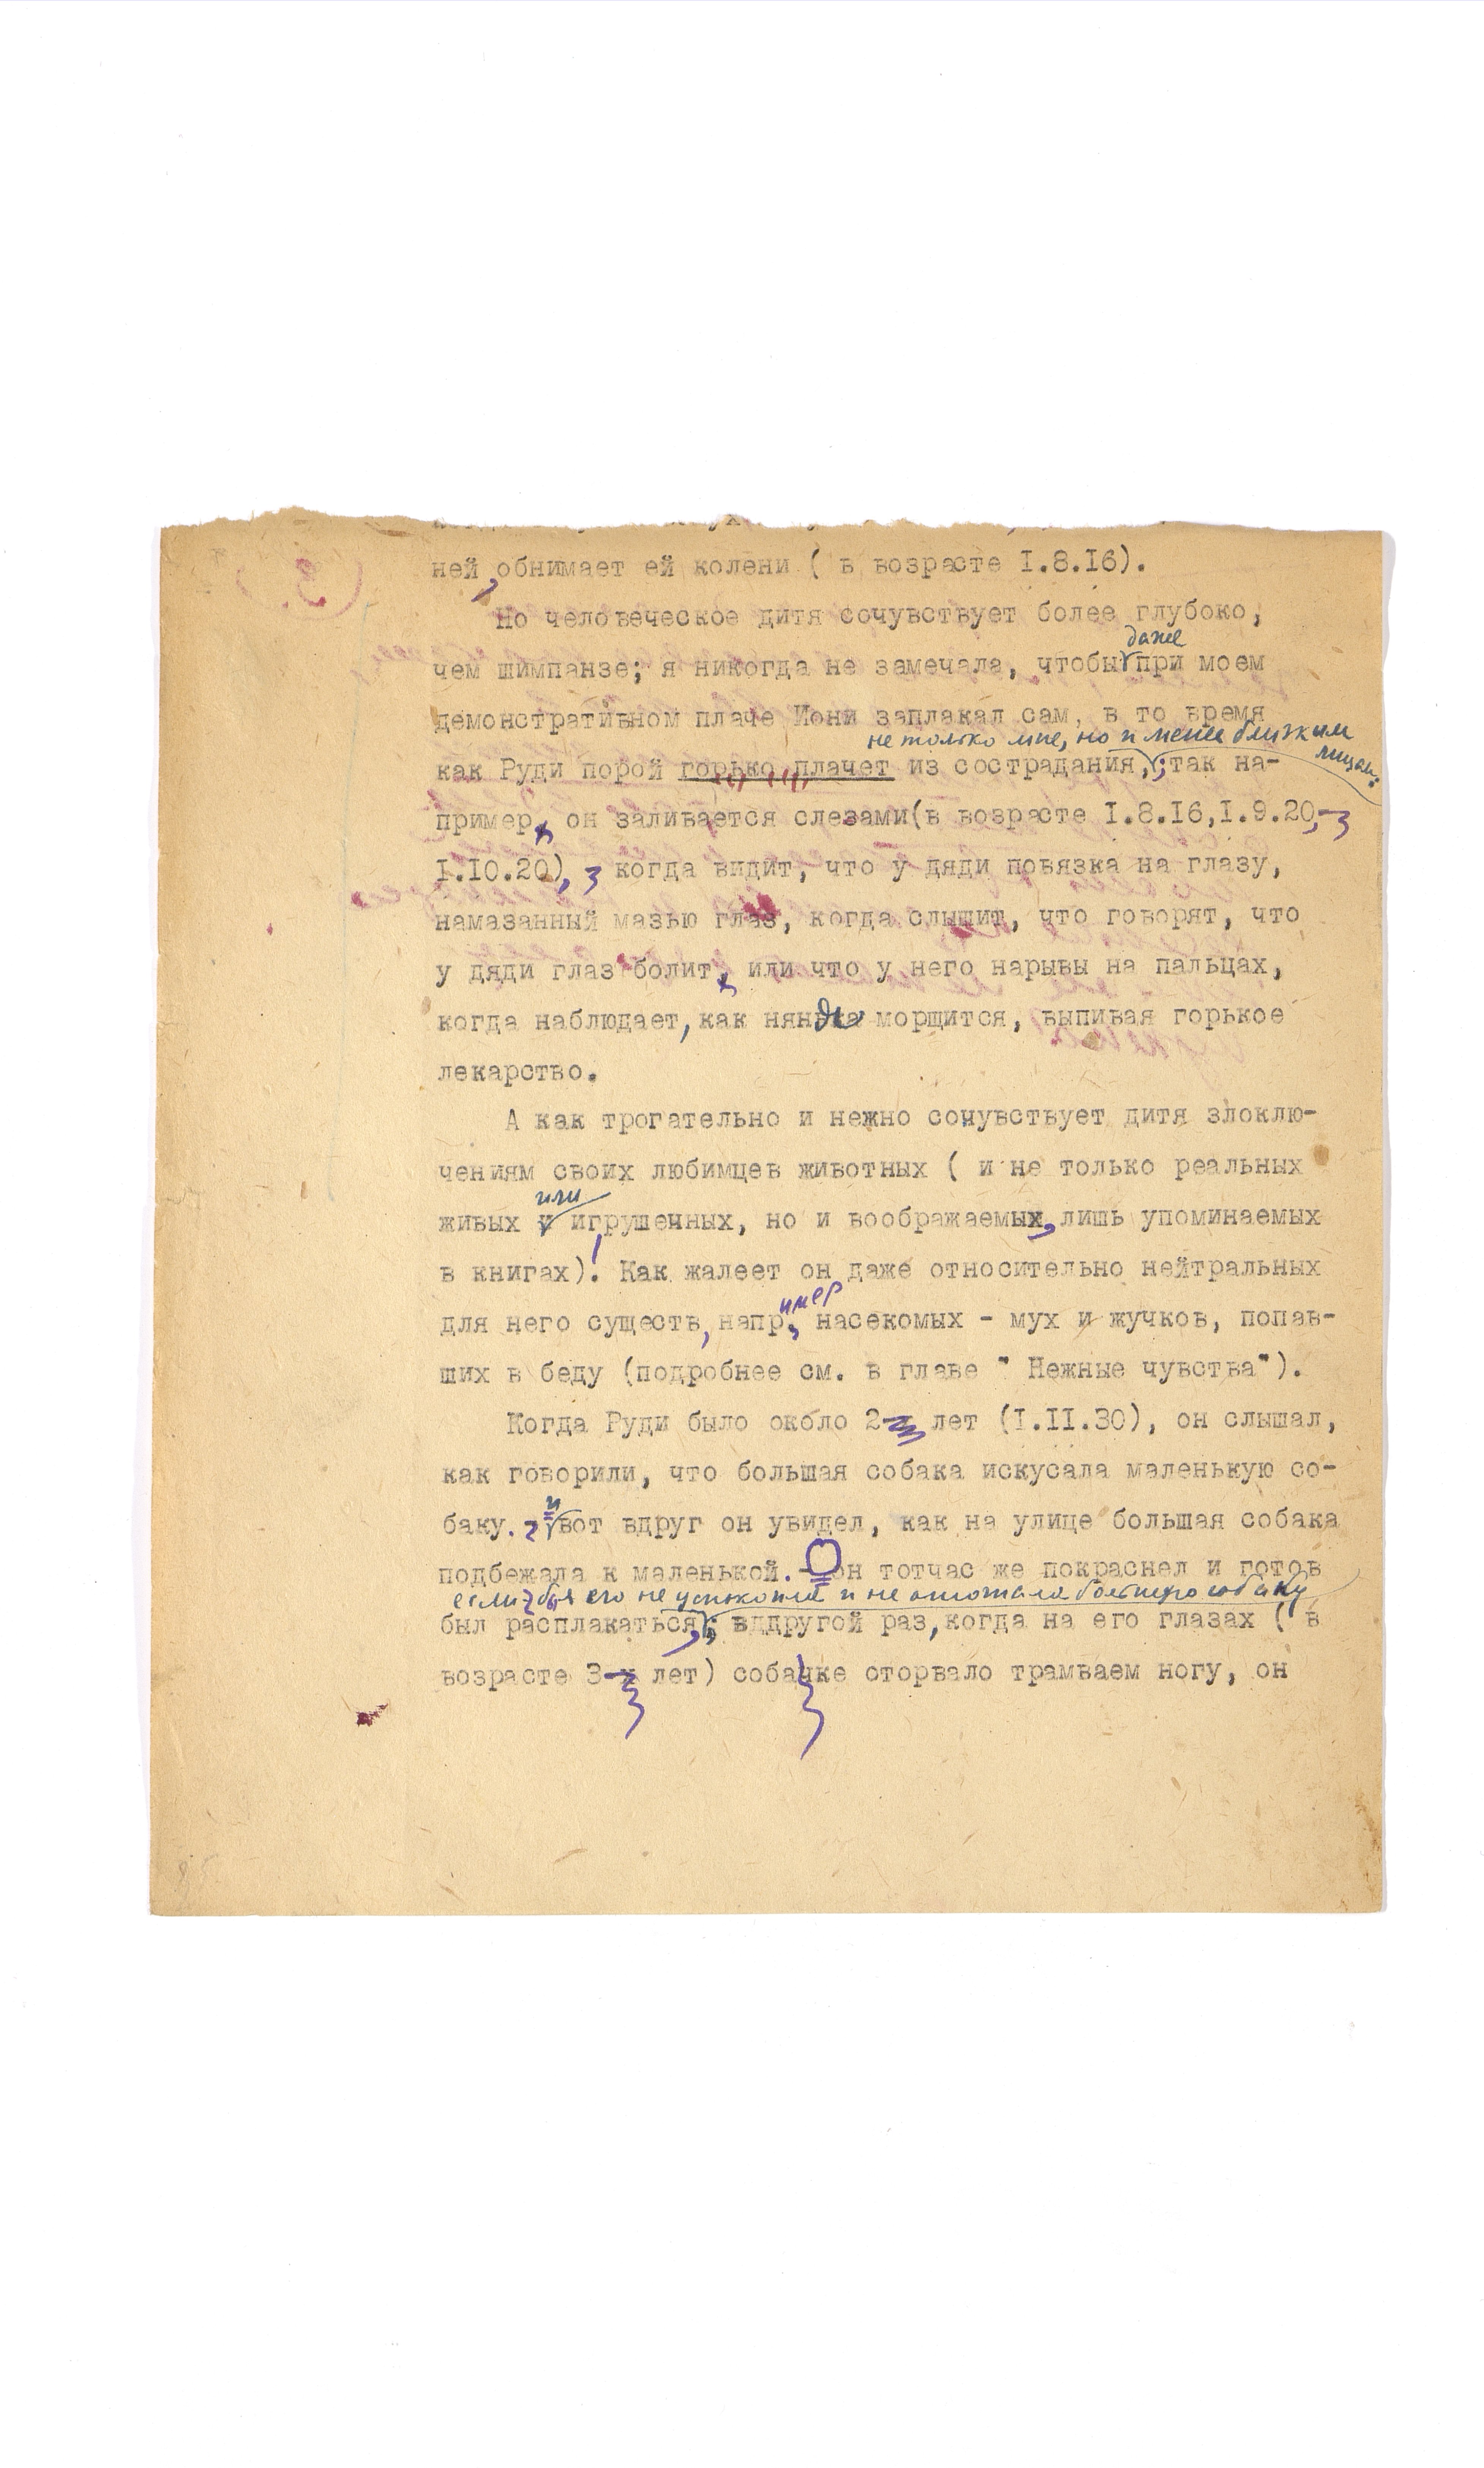 ней, обнимает ей колени ( в возрасте I.8.I6).
Но человеческое дитя сочувствует более глубоко,
даже
чем шимпанзе; я никогда не замечала, чтобы при моем
демонстративном плаче Иони заплакал сам, в то время
не только мне, но и менее близким
лицам:
как Руди порой горько плачет из сострадания, так на-
пример, он заливается слезами(в возрасте I.8.I6,I.9.20,
I.I0.20), когда видит, что у дяди повязка на глазу,
намазанный мазью глаз, когда слышит, что говорят, что
у дяди глаз болит, или что у него нарывы на пальцах,
когда наблюдает, как няня морщится, выпивая горькое
лекарство.
А как трогательно и нежно сочувствует дитя злоклю-
чениям своих любимцев животных ( и не только реальных
или
живых и игрушечных, но и воображаемых, лишь упоминаемых
в книгах)! Как жалеет он даже относительно нейтральных
имер
для него существ, напр. насекомых - мух и жучков, попав-
ших в беду (подробнее см. в главе " Нежные чувства").
Когда Руди было около 2-х лет (I.II.30), он слышал,
как говорили, что большая собака искусала маленькую со-
и
баку. вот вдруг он увидел, как на улице большая собака
подбежала к маленькой. - Он тотчас же покраснел и готов
если бы я его не успокоила и не отогнала большую собаку
был расплакаться; вддругой раз, когда на его глазах ( в
возрасте 3-х лет) собачке оторвало трамваем ногу, он